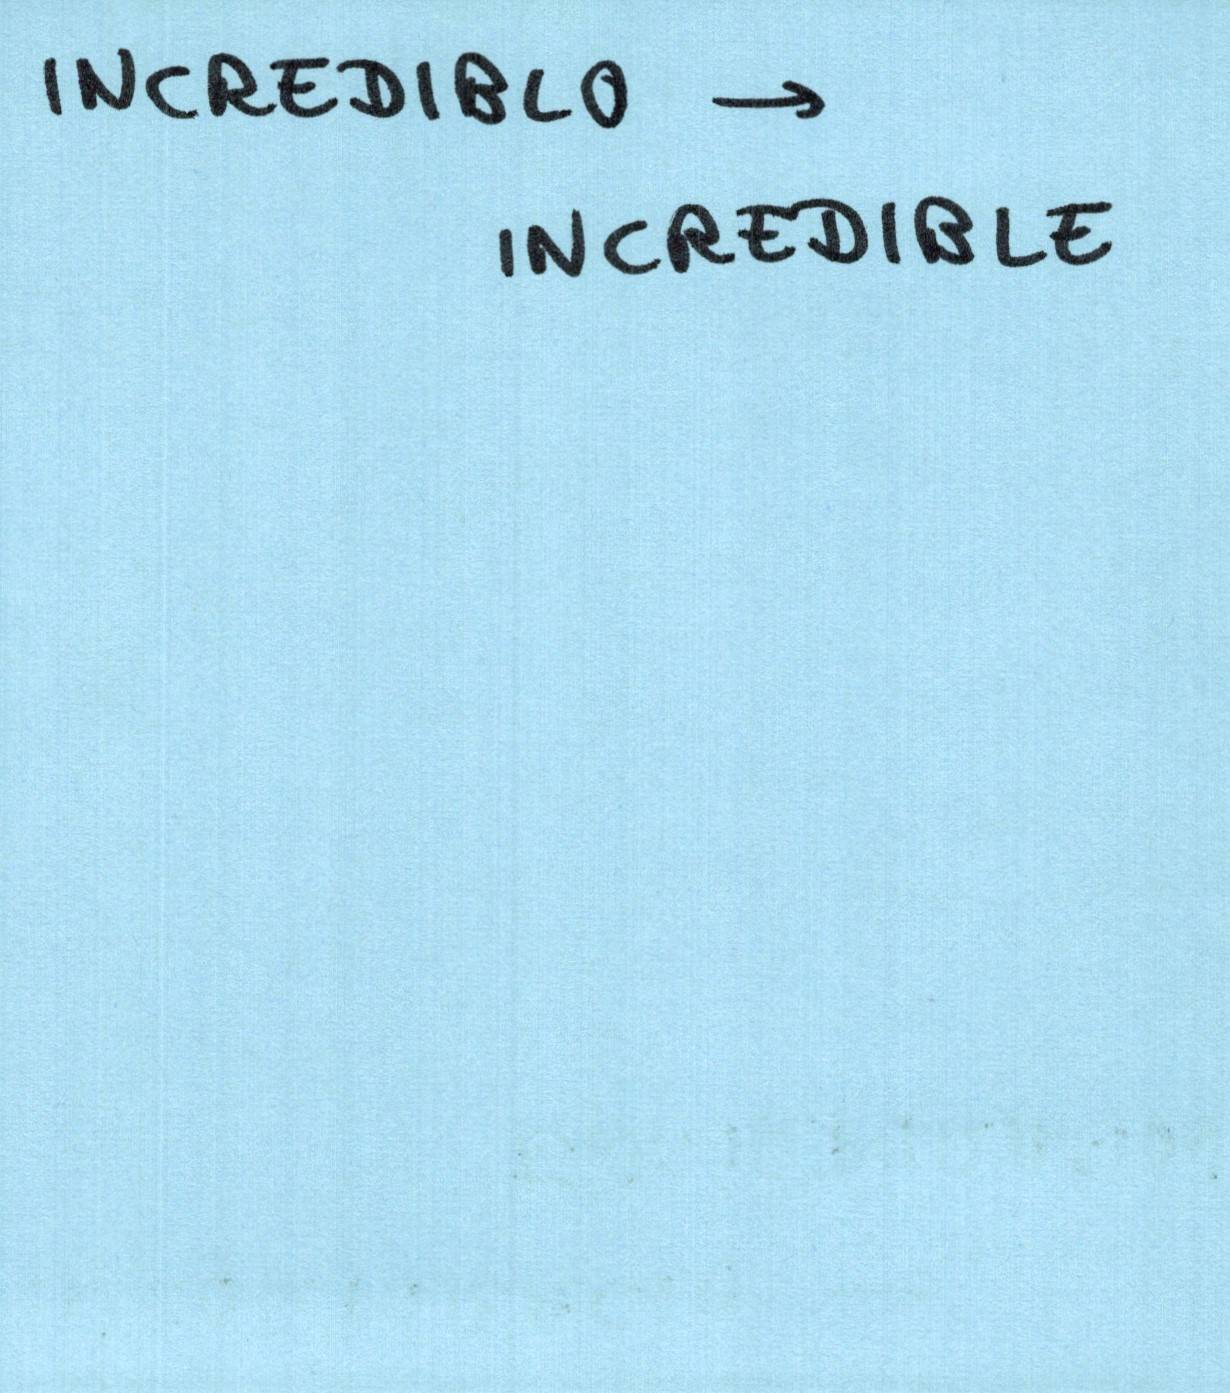 INCREDIBLO →
INCREDIBLE